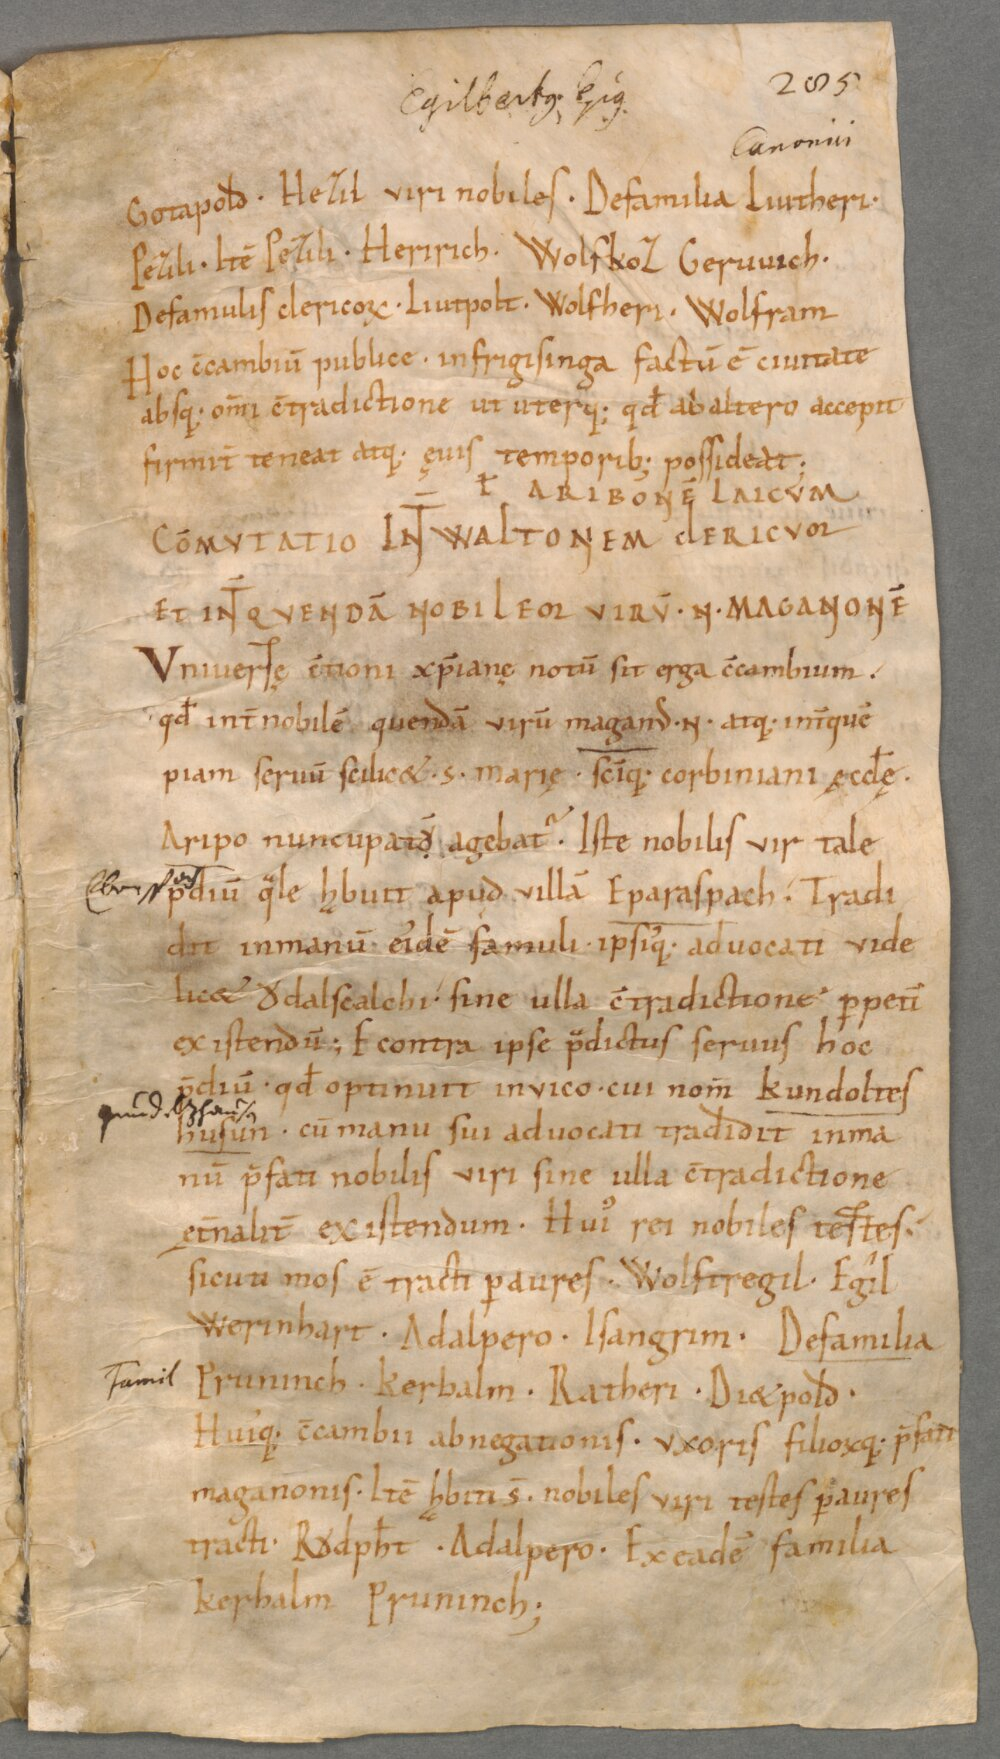 Egilbertꝰ Epꝰ.
285
Canonici
Gotapold · Hezil viri nobiles · Defamilia Liutheri·
Pezili · Itē Pezili · Heririch · Wolfkoz Geruuich·
Defamulis clericoꝝ · Liutpolt · Wolfheri · Wolfram
Hoc c̄cambiū publice · infrigisinga factū ē ciuitate
absq; om̄i c̄tradictione ut uterq; qđ abaltero accepit
firmit̄ teneat atq; ęuis temporib; possideat;
ł ARIBONĒ LAICVM
CŌMVTATIO INT̄ WALTONEM CLERICVM
ET INT̄ QVENDĀ NOBILEM VIRV̄ · N · MAGANONĒ
Vniuersę c̄tioni xp̄ianę notū sit erga c̄cambium ·
qđ int̄ nobilē quendā virū magand · N · atq; int̄ quē
piam seruū scilic& · s · marię · sc̄iq; corbiniani ęccłę ·
Aripo nuncupatū agebat᷑ · Iste nobilis vir tale
Eberspach
p̄diū q̈le hҍuit apud villā Eparaspach · Tradi
dit inmanū eidē famuli · ipsiq; aduocati vide
lic& Ödalscalchi · sine ulla c̄tradictione ꝑpetī
existendū; Econtra ipse p̈dictus seruus hoc
p̄diū · qđ optinuit invico · cui nom̄ kundoltes
gundeltzhausn
husun · cū manu sui aduocati tradidit inma
nū p̄fati nobilis viri sine ulla c̄tradictione
ęt̄nalit̄ existendum · Huiꝰ rei nobiles testes ·
sicuti mos ē tracti ꝑ aures · Wolftregil · Egil
Werinhart · Adalpero · Isangrim · Defamilia
Famil
Pruninch · kerhalm · Ratheri · Di&pold ·
Huiꝰq; c̄cambii abnegationis · vxoris filioꝝq; p̄fati
maganonis · Itē hҍiti s̄ · nobiles viri testes ꝑ aures
tracti · Rödpħt · Adalpero · Excadē familia
kerhalm Pruninch;